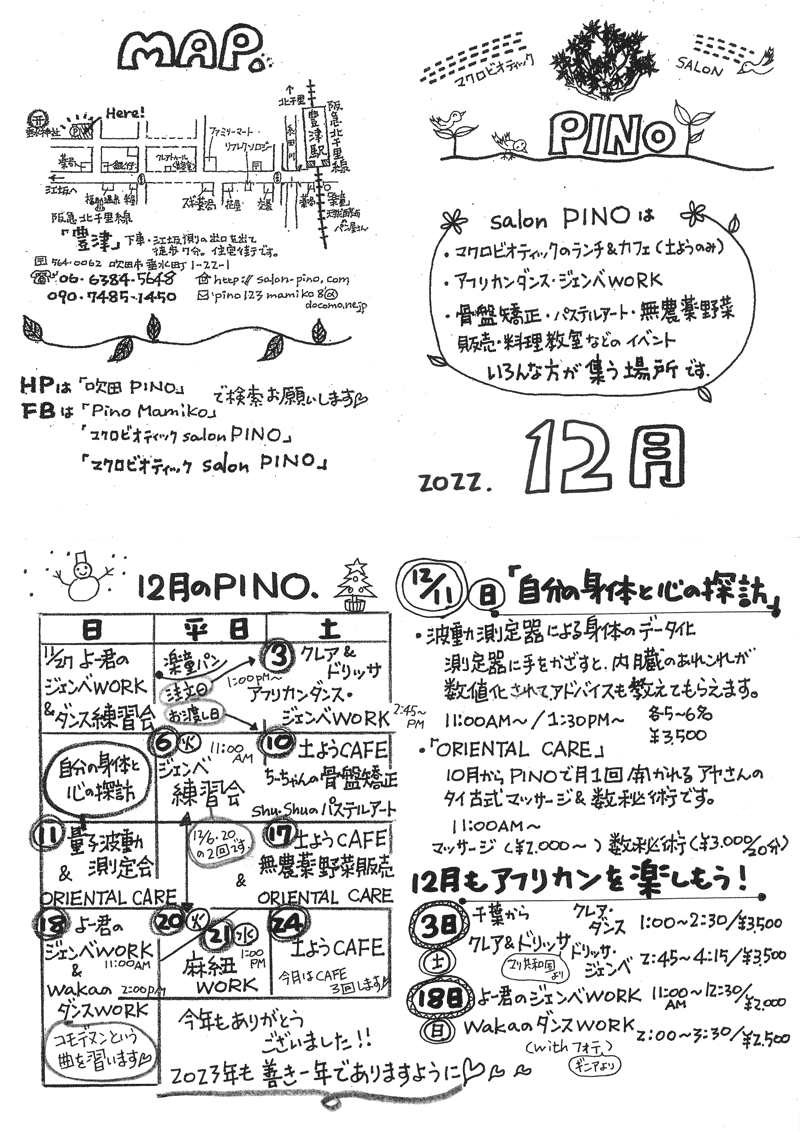 MAP.
Here!
北千里
豊津駅
阪急北千里線
糸田川
ファミリーマート
リフレクソロジー
江坂へ
花屋
阪急北千里線
「豊津」下車・江坂側の出口を出て
徒歩7分。住宅街です。
〒564-0062 吹田市垂水町1-22-1
☎06-6384-5648
http://salon-pino.com
090-7485-1450
✉pino123mamiko8@
docomo.ne.jp
HPは「吹田PINO」
で検索お願いします♡
FBは「Pino Mamiko」
「マクロビオティック salon PINO」
「マクロビオティック salon PINO」
マクロビオティック
SALON
PINO
salon PINOは
・マクロビオティックのランチ&カフェ(土ようのみ)
・アフリカンダンス・ジェンベWORK
・骨盤矯正・パステルアート・無農薬野菜
販売・料理教室などのイベント
いろんな方が集う場所です。
2022. 12月
12月のPINO.
日
平日
土
11/27 よー君の
ジェンベWORK
&ダンス練習会
楽童パン
注文日
お渡し日
③ クレア&
ドリッサ
1:00PM~
アフリカンダンス・
ジェンベWORK 2:45~
PM
自分の身体と
心の探訪
⑥火 11:00
AM
ジェンベ
練習会
12/6・20
の2回です
⑩ 土ようCAFE
ちーちゃんの骨盤矯正
Shu-Shuのパステルアート
⑪ 量子波動
測定会
&
ORIENTAL CARE
⑰ 土ようCAFE
無農薬野菜販売
&
ORIENTAL CARE
⑱ よー君の
ジェンベWORK
11:00AM
&
Wakaの 2:00PM
ダンスWORK
コモデヌンという
曲を習います♡
⑳火
㉑水
麻紐 1:00
PM
WORK
㉔
土ようCAFE
今月はCAFE
3回します
今年もありがとう
ございました!!
2023年も善き一年でありますように♡
12/11 日 「自分の身体と心の探訪」
・波動測定器による身体のデータ化
測定器に手をかざすと、内臓のあれこれが
数値化されて、アドバイスも教えてもらえます。
11:00AM~/1:30PM~ 各5~6名
¥3,500
・「ORIENTAL CARE」
10月からPINOで月1回開かれるアヤさんの
タイ古式マッサージ&数秘術です。
11:00AM~
マッサージ(¥2,000~)数秘術(¥3,000/20分)
12月もアフリカンを楽しもう!
3日 土
千葉から
クレア&ドリッサ
マリ共和国
より
クレア・
ダンス 1:00~2:30/¥3,500
ドリッサ・
ジェンベ 2:45~4:15/¥3,500
18日 日
よー君のジェンベWORK 11:00~12:30/¥2,000
AM
WakaのダンスWORK 2:00~3:30/¥2,500
(with フォデ)
ギニアより